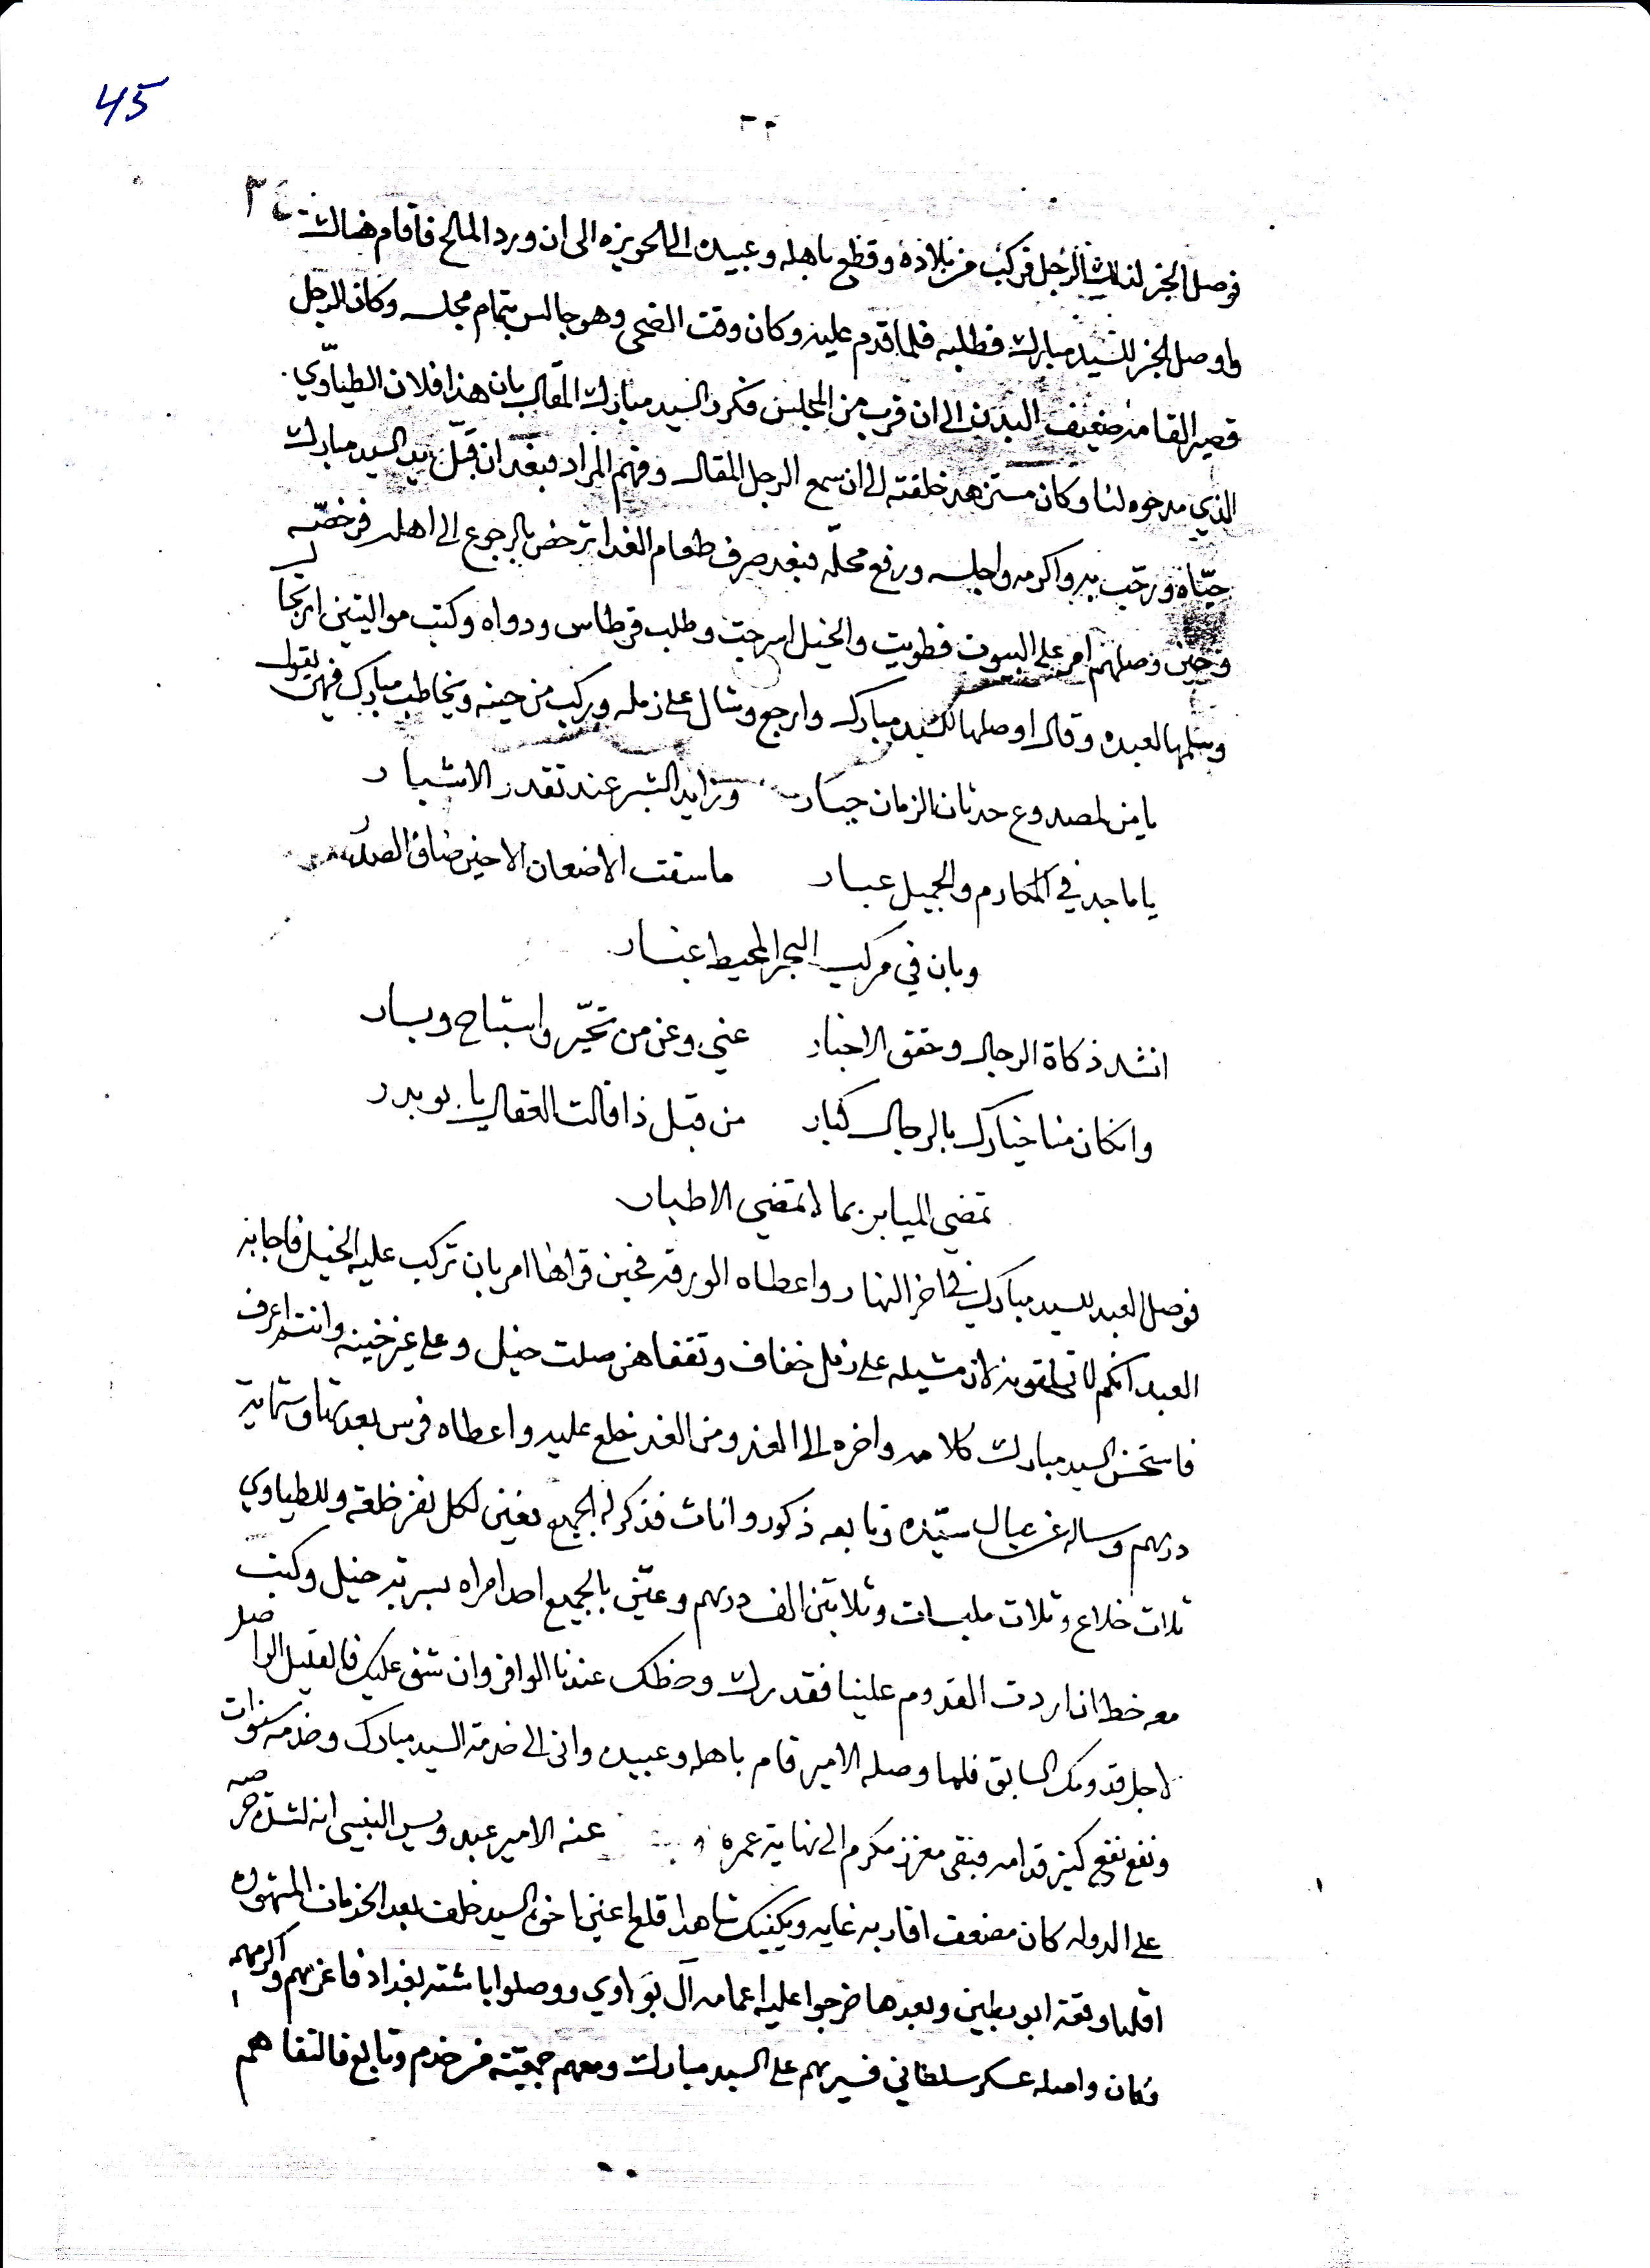 45
٣٤
فوصل الخبر لذلك الرجل فركب من بلاده وقطع باهله وعبيده الى الحويزه الى ان ورد المالح فاقام هناك
واوصل الخبر للسيد مبارك فطلبه فلما قدم عليه وكان وقت الضحى وهو جالس بتمام مجلسه وكان الرجل
قصير القامه ضعيف البدن الى ان قرب من المجلس فكرر السيد مبارك المقال بان هذا فلان الطياوي
الذي مدحوه لنا وكان مستزهد خلقته الى ان سمع الرجل المقال وفهم المراد فبعد ان قبل يد السيد مبارك
حياه ورحب به واكرمه واجلسه ورفع محله فبعد صرف طعام الغدا ترخص بالرجوع الى اهله فرخصه
وحين وصلهم امر على البيوت فطويت والخيل اسرجت وطلب قرطاس ودواه وكتب مواليتين ارتجا
وسلمها لعبده وقال اوصلها للسيد مبارك وارجع وشال على زمله وركب من حينه ويخاطب مبارك فيهن يقول
يا من لصدوع حدثان الزمان جبار وزايد البشر عند تقدر الاشبار
يا ماجد في المكارم والجميل عبار ما سقت الاضعان الا حين ضاق الصدر
وبان في مركب البحر المحيط عبار
انشد ذكاة الرجال وحقق الاخبار عني وعن من تخير واستباح وبار
وانكان منا خيارك بالرجال كبار من قبل ذا قالت العقال يا بو بدر
تمضي الميابر بما لا تمضي الاطبار
فوصل العبد للسيد مبارك في اخر النهار واعطاه الورقه فحين قراها امر بان تركب عليه الخيل فاجابه
العبد انكم لا تلحقونه لان مشيله على زمل خفاف وتقفاهن صلت خيل وعلى غير خينه وانتم اعرف
فاستحسن السيد مبارك كلامه واخره الى الغد ومن الغد خلع عليه واعطاه فرس بعدتها وستمايه
درهم وساله عن عيال سيده وتابعه ذكور واناث فذكر له الجميع فعين لكل نفر خلعة وللطياوي
ثلاث خلاع وثلاث ملبسات وثلاثين الف درهم وعين بالجميع احد امراه بسربة خيل وكتب
معه خط ان اردت القدوم علينا فقدرك وحظك عندنا الوافر وان شق عليك فالقليل الواصل
لاجل قدومك السابق فلما وصله الامير قام باهله وعبيده واتى الى خدمة السيد مبارك وخدمه سنوات
ونفع نفع كثير قدامه فبقى معزز مكرم الى نهاية عمره عنه الامير عبد ويس النيسي انه لشدة حرصه
على الدوله كان مضعف اقاربه غايه ويكفيك شاهدا قلع اعين اخوه السيد خلف بعد الخدمات المشهوره
اقلها وقعة ابو بطين وبعدها خرجوا عليه اعمامه آل بو اوي ووصلوا باشة بغداد فاعزهم واكرمهم
وكان واصله عسكر سلطاني فسيرهم على السيد مبارك ومعهم جمعيته من خدم وتابع فالتقاهم